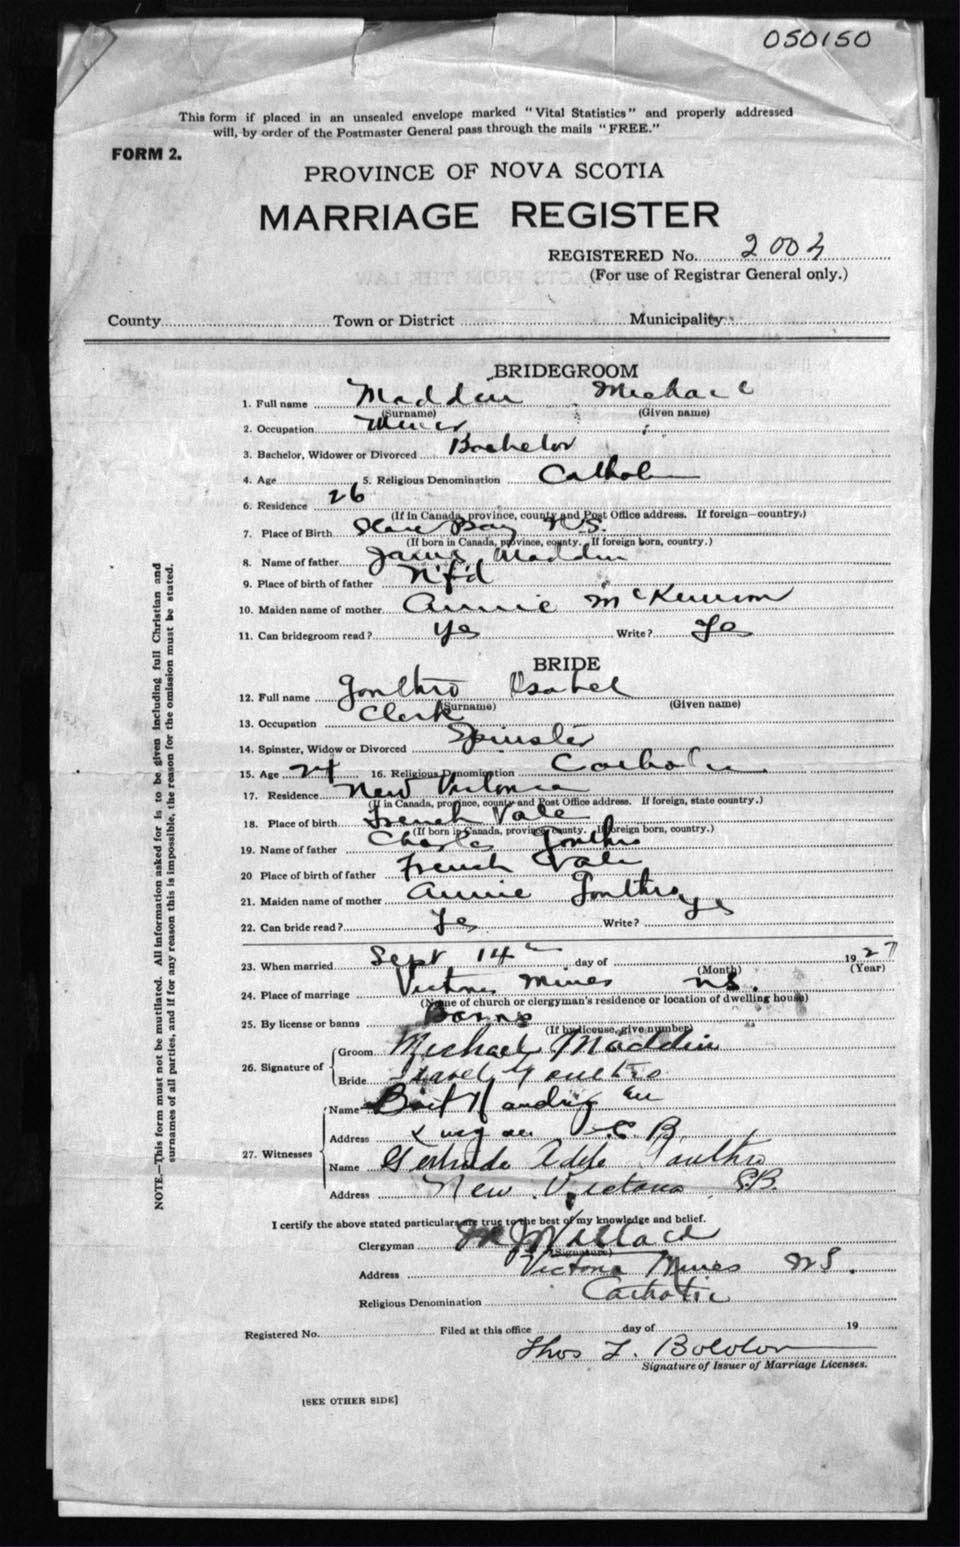 050150
This form if placed in an unsealed envelope marked "Vital Statistics" and properly addressed
will, by order of the Postmaster General pass through the mails "FREE."
FORM 2.
PROVINCE OF NOVA SCOTIA
MARRIAGE REGISTER
REGISTERED No. 2003
(For use of Registrar General only.)
County Town or District Municipality
BRIDEGROOM
1. Full name Maddin Michael
(Surname) (Given name)
2. Occupation Miner
3. Bachelor, Widower or Divorced Bachelor
4. Age 5. Religious Denomination Catholic
6. Residence 26
(If in Canada, province, county and Post Office address. If foreign—country.)
7. Place of Birth Bay N.S.
(If born in Canada, province, county. If foreign born, country.)
8. Name of father James Maddin
9. Place of birth of father N'f'd
10. Maiden name of mother Annie McKinnon
11. Can bridegroom read? Yes Write? Yes
BRIDE
12. Full name Gouthro Isabel
(Surname) (Given name)
13. Occupation Clerk
14. Spinster, Widow or Divorced Spinster
15. Age 24 16. Religious Denomination Catholic
17. Residence New Victoria
(If in Canada, province, county and Post Office address. If foreign, state country.)
18. Place of birth French Vale
(If born in Canada, province, county. If foreign born, country.)
19. Name of father Charles Gouthro
20 Place of birth of father French Vale
21. Maiden name of mother Annie Gouthro
22. Can bride read? Yes Write? Yes
23. When married Sept 14 day of 1927
(Month) (Year)
24. Place of marriage Victoria Mines N.S.
(Name of church or clergyman's residence or location of dwelling house)
25. By license or banns Banns
(If by license, give number)
26. Signature of Groom Michael Maddin
Bride Isabel Gouthro
27. Witnesses
Name
Address C.B.
Name Gertrude Adele Gouthro
Address New Victoria C.B.
I certify the above stated particulars are true to the best of my knowledge and belief.
Clergyman M J Wallace
(Signature)
Address Victoria Mines N.S.
Religious Denomination Catholic
Registered No. Filed at this office day of 19
Thos L.
Signature of Issuer of Marriage Licenses.
[SEE OTHER SIDE]
NOTE.—This form must not be mutilated. All information asked for is to be given including full Christian and
surnames of all parties, and if for any reason this is impossible, the reason for the omission must be stated.